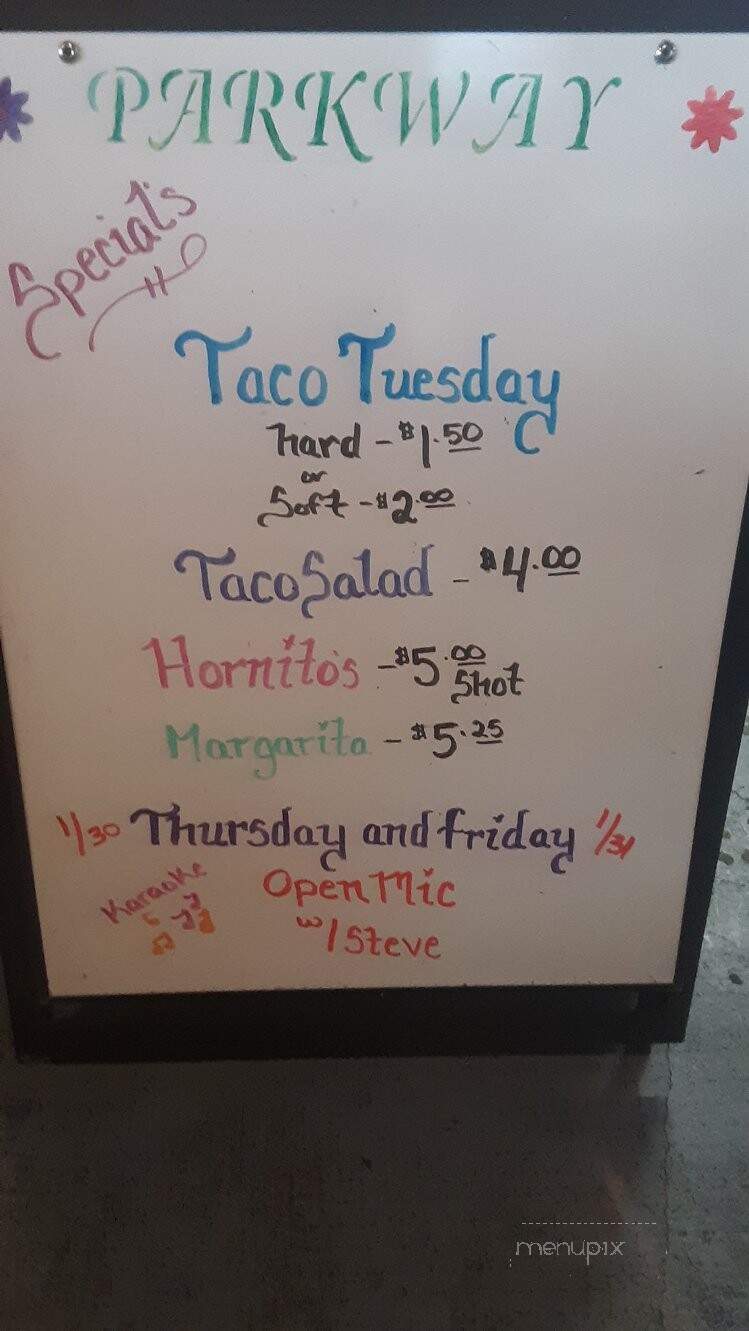 PARKWAY
Specials
Taco Tuesday
hard - $1.50
or
Soft - $2.00
Taco Salad - $4.00
Hornitos - $5.00
Shot
Margarita - $5.25
1/30 Thursday and friday 1/31
Karaoke
Open Mic
w/ Steve
menupix